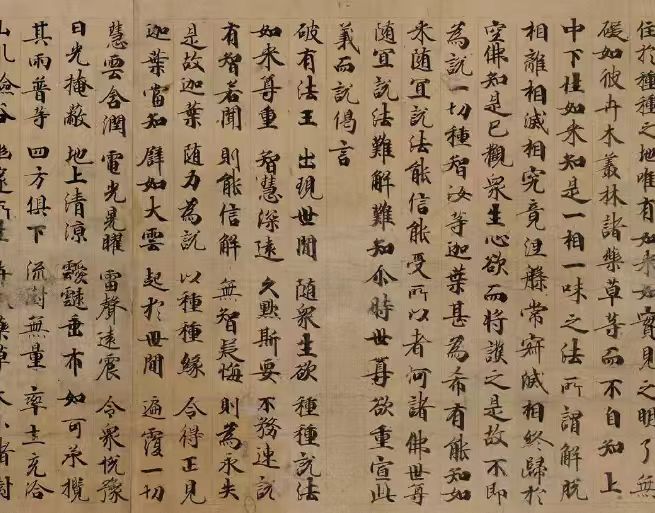 住於種種之地唯有如來如實見之明了無
礙如彼卉木叢林諸藥草等而不自知上
中下性如來知是一相一味之法所謂解脫
相離相滅相究竟涅槃常寂滅相終歸於
空佛知是已觀衆生心欲而將護之是故不即
為說一切種智汝等迦葉甚為希有能知如
來随宜說法能信能受所以者何諸佛世尊
随宜說法難解難知尒時世尊欲重宣此
義而說偈言
破有法王 出現世間 随衆生欲 種種說法
如來尊重 智慧深遠 久默斯要 不務速說
有智若聞 則能信解 無智疑悔 則為永失
是故迦葉 随力為說 以種種緣 令得正見
迦葉當知 譬如大雲 起於世間 遍覆一切
慧雲含潤 電光晃曜 雷聲遠震 令衆悅豫
日光掩蔽 地上清涼 靉靆垂布 如可承攬
其雨普等 四方俱下 流澍無量 率土充洽
山川險谷 所生 卉 藥草 大小諸樹